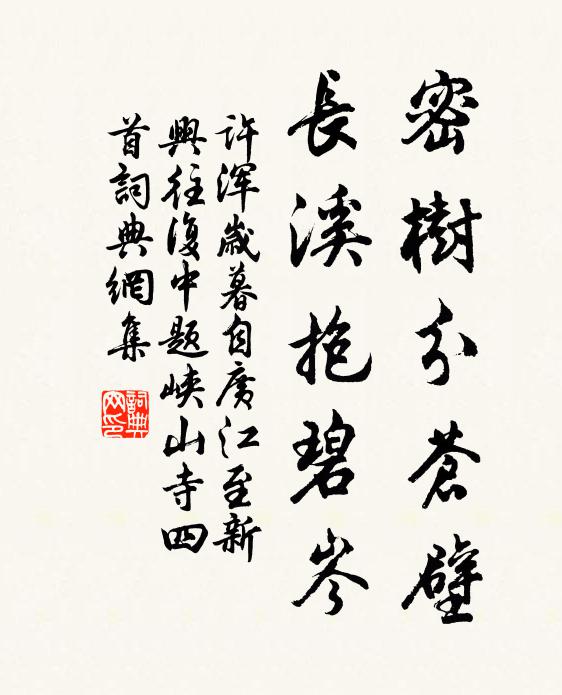 密樹分蒼壁
長溪抱碧岑
許渾歲暮自廣江至新
興往復中題峽山寺四
首詞典網集
詞典网印